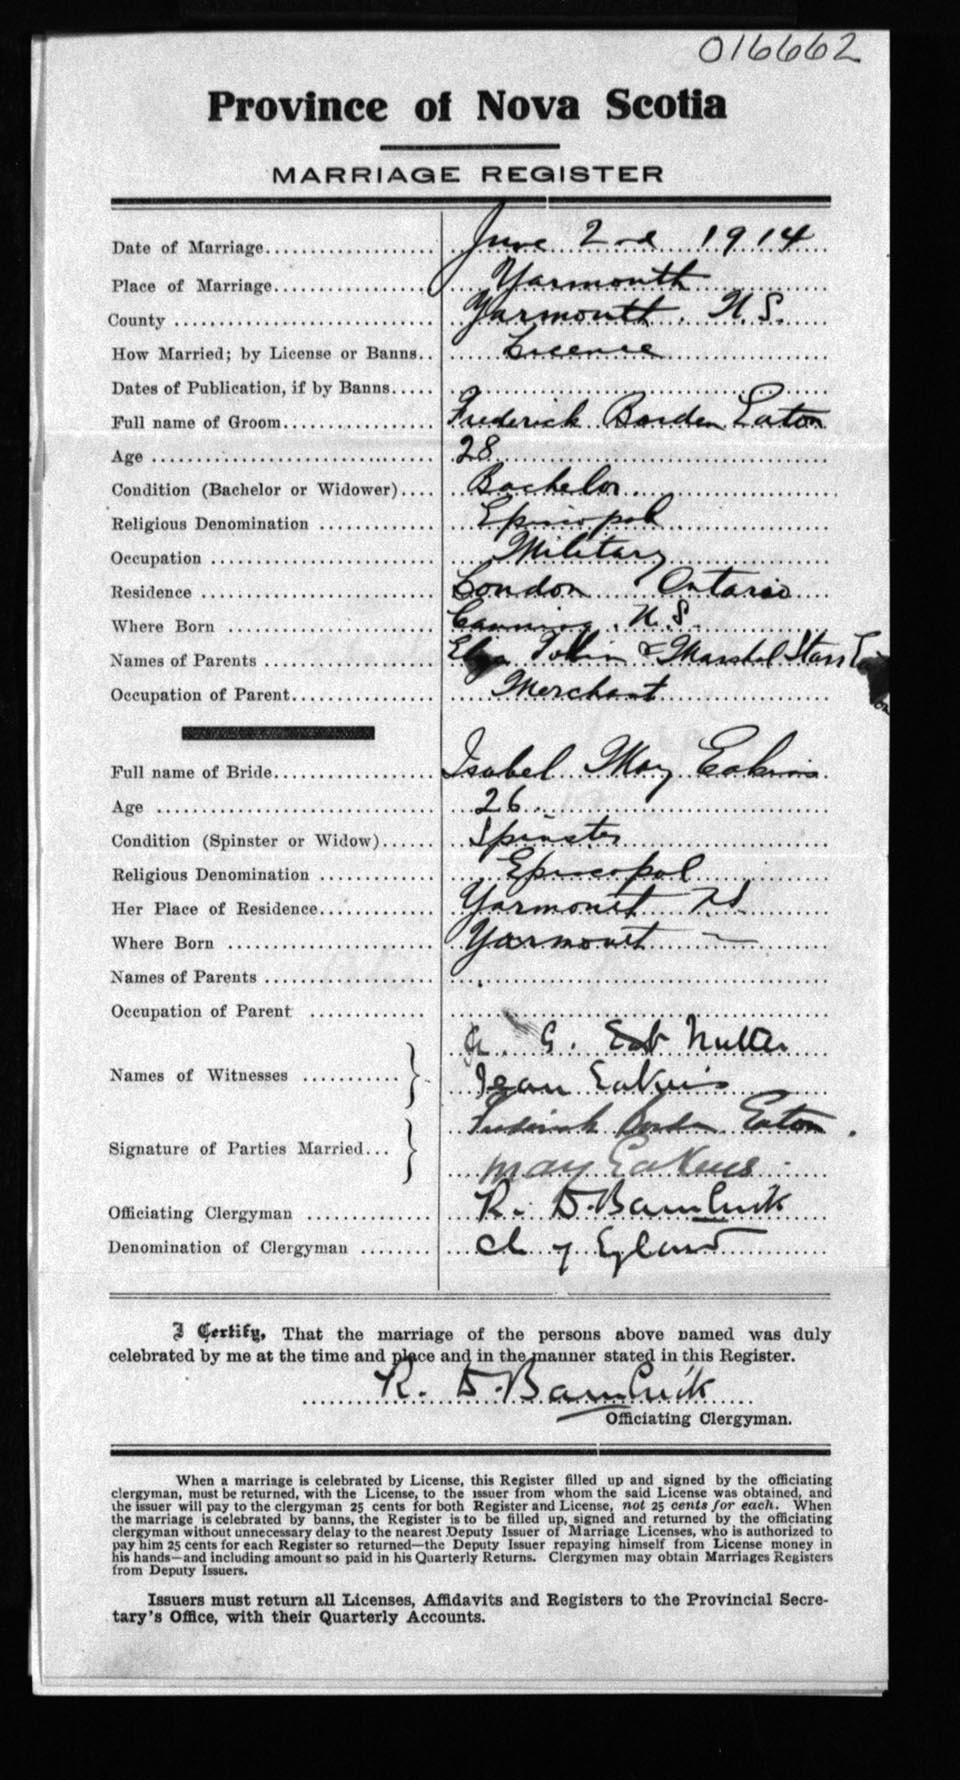 016662
Province of Nova Scotia
MARRIAGE REGISTER
Date of Marriage.................... June 2nd 1914
Place of Marriage................... Yarmouth
County ............................ Yarmouth. N.S.
How Married; by License or Banns.. Licence
Dates of Publication, if by Banns.....
Full name of Groom.................. Frederick Borden Eaton
Age ................................. 28
Condition (Bachelor or Widower).... Bachelor.
Religious Denomination .............. Episcopal
Occupation .......................... Military
Residence ........................... London Ontario
Where Born ......................... Canning. N.S.
Names of Parents .................... Tobin & Marshal Starr
Occupation of Parent................. Merchant
Full name of Bride................... Isabel May Eakins
Age ................................. 26.
Condition (Spinster or Widow)...... Spinster
Religious Denomination .............. Episcopal
Her Place of Residence.............. Yarmouth NS.
Where Born ......................... Yarmouth —
Names of Parents ....................
Occupation of Parent .............
Names of Witnesses ........... G. Nutter
Jean Eakins
Signature of Parties Married... Frederick Borden Eaton.
May Eakins
Officiating Clergyman .............. R. D. Bambrick
Denomination of Clergyman ........ Ch of England
I Certify, That the marriage of the persons above named was duly
celebrated by me at the time and place and in the manner stated in this Register.
R. D. Bambrick
Officiating Clergyman.
When a marriage is celebrated by License, this Register filled up and signed by the officiating
clergyman, must be returned, with the License, to the issuer from whom the said License was obtained, and
the issuer will pay to the clergyman 25 cents for both Register and License, not 25 cents for each. When
the marriage is celebrated by banns, the Register is to be filled up, signed and returned by the officiating
clergyman without unnecessary delay to the nearest Deputy Issuer of Marriage Licenses, who is authorized to
pay him 25 cents for each Register so returned—the Deputy Issuer repaying himself from License money in
his hands—and including amount so paid in his Quarterly Returns. Clergymen may obtain Marriages Registers
from Deputy Issuers.
Issuers must return all Licenses, Affidavits and Registers to the Provincial Secre-
tary's Office, with their Quarterly Accounts.